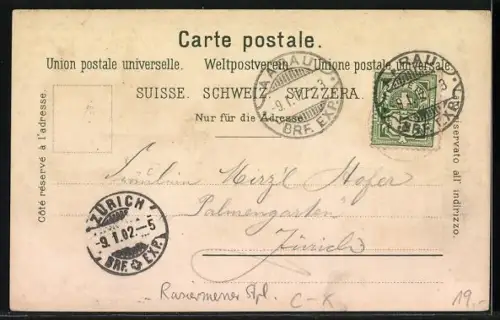 Carte postale.
Union postale universelle. Weltpostverein. Unione postale universale.
SUISSE. SCHWEIZ. SVIZZERA.
Nur für die Adresse.
Côté réservé à l'adresse.
riservato all' indirizzo.
AARAU
-9.1. 3
BRF. EXP.
AARAU
3
BRF. EXP.
Fräulein Mirzl Hofer
"Palmengarten"
Zürich
ZÜRICH
-9.1.02.-5
BRF. EXP.
C-K
19.-